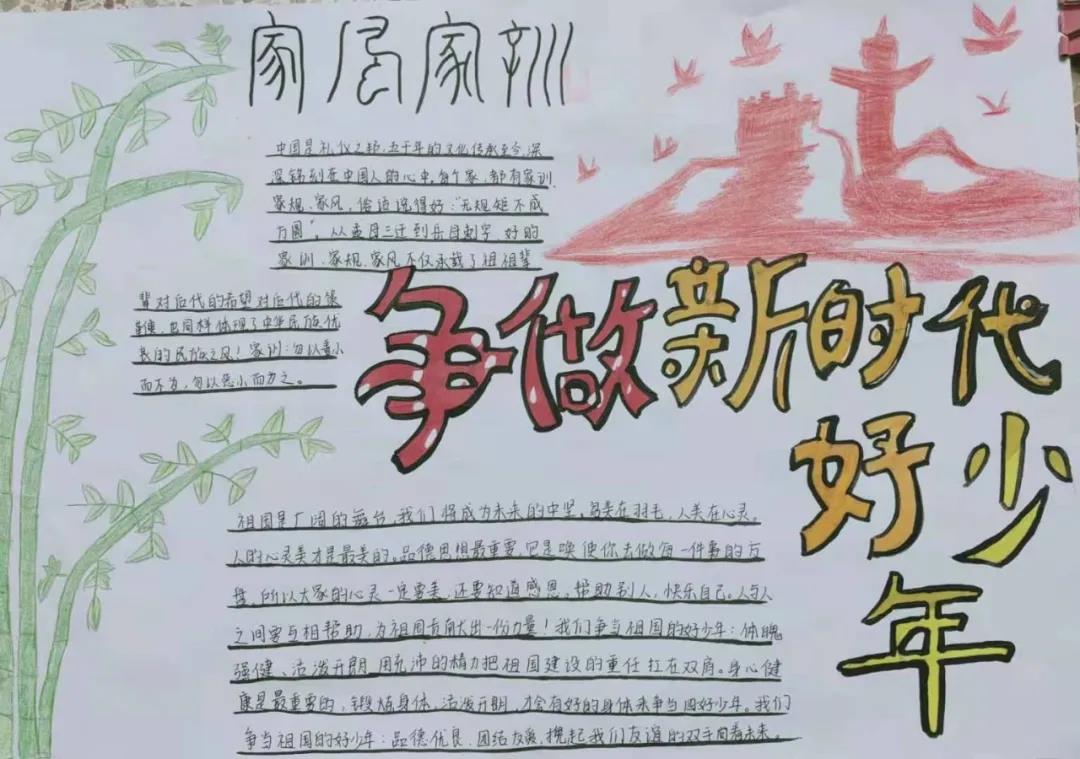 家风家训
中国是礼仪之邦,五千年的文化传承至今,深
深铭刻在中国人的心中,每个家,都有家训、
家规、家风,俗话说得好:“无规矩不成
方圆”,从孟母三迁到岳母刺字 好的
家训、家规、家风不仅承载了祖祖辈
辈对后代的希望对后代的
,也同样体现了中华民族优
良的民族之风!家训:勿以善小
而不为,勿以恶小而为之。
争做新时代
好少
年
祖国是广阔的舞台,我们将成为未来的中坚,鸟美在羽毛,人美在心灵。
人的心灵美才是最美的。品德思想最重要,它是唤使你去做每一件事的方
,所以大家的心灵一定要美,还要知道感恩,帮助别人,快乐自己。人与人
之间要互相帮助,为祖国贡献出一份力量!我们争当祖国的好少年:体魄
强健、活泼开朗,用充沛的精力把祖国建设的重任扛在双肩。身心健
康是最重要的,锻炼身体,活泼开朗,才会有好的身体来争当四好少年。我们
争当祖国的好少年:品德优良、团结友爱,挽起我们友谊的双手向着未来。